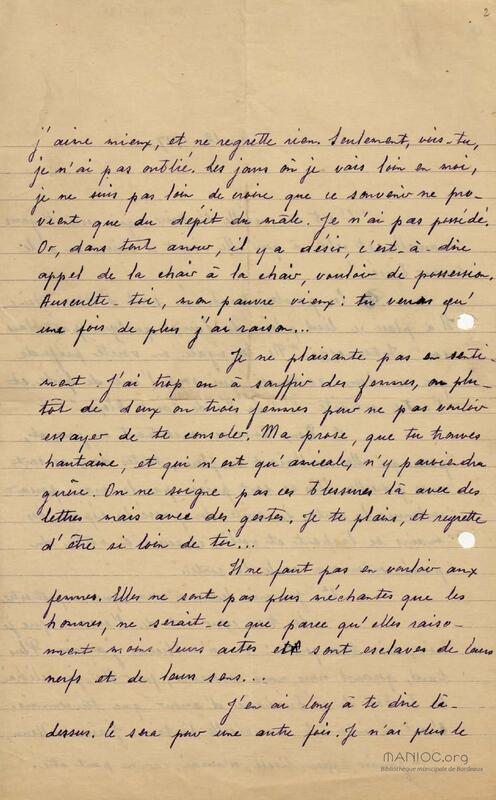 2
j'aime mieux, et ne regrette rien. Seulement, vois-tu,
je n'ai pas oublié. Les jours où je vais loin en moi,
je ne suis pas loin de croire que ce souvenir ne pro-
vient que du dépit du mâle. Je n'ai pas possédé.
Or, dans tout amour, il y a désir, c'est-à-dire
appel de la chair à la chair, vouloir de possession.
Ausculte-toi, mon pauvre vieux : tu verras qu'
une fois de plus j'ai raison...
Je ne plaisante pas en senti-
ment. J'ai trop eu à souffrir des femmes, ou plu-
tôt de deux ou trois femmes pour ne pas vouloir
essayer de te consoler. Ma prose, que tu trouves
hautaine, et qui n'est qu'amicale, n'y parviendra
guère. On ne soigne pas ces blessures là avec des
lettres mais avec des gestes. Je te plains, et regrette
d'être si loin de toi...
Il ne faut pas en vouloir aux
femmes. Elles ne sont pas plus méchantes que les
hommes, ne serait-ce que parce qu'elles raiso-
nnent moins leurs actes et sont esclaves de leurs
nerfs et de leurs sens...
J'en ai long à te dire là-
dessus. Ce sera pour une autre fois. Je n'ai plus le
MANIOC.org
Bibliothèque municipale de Bordeaux